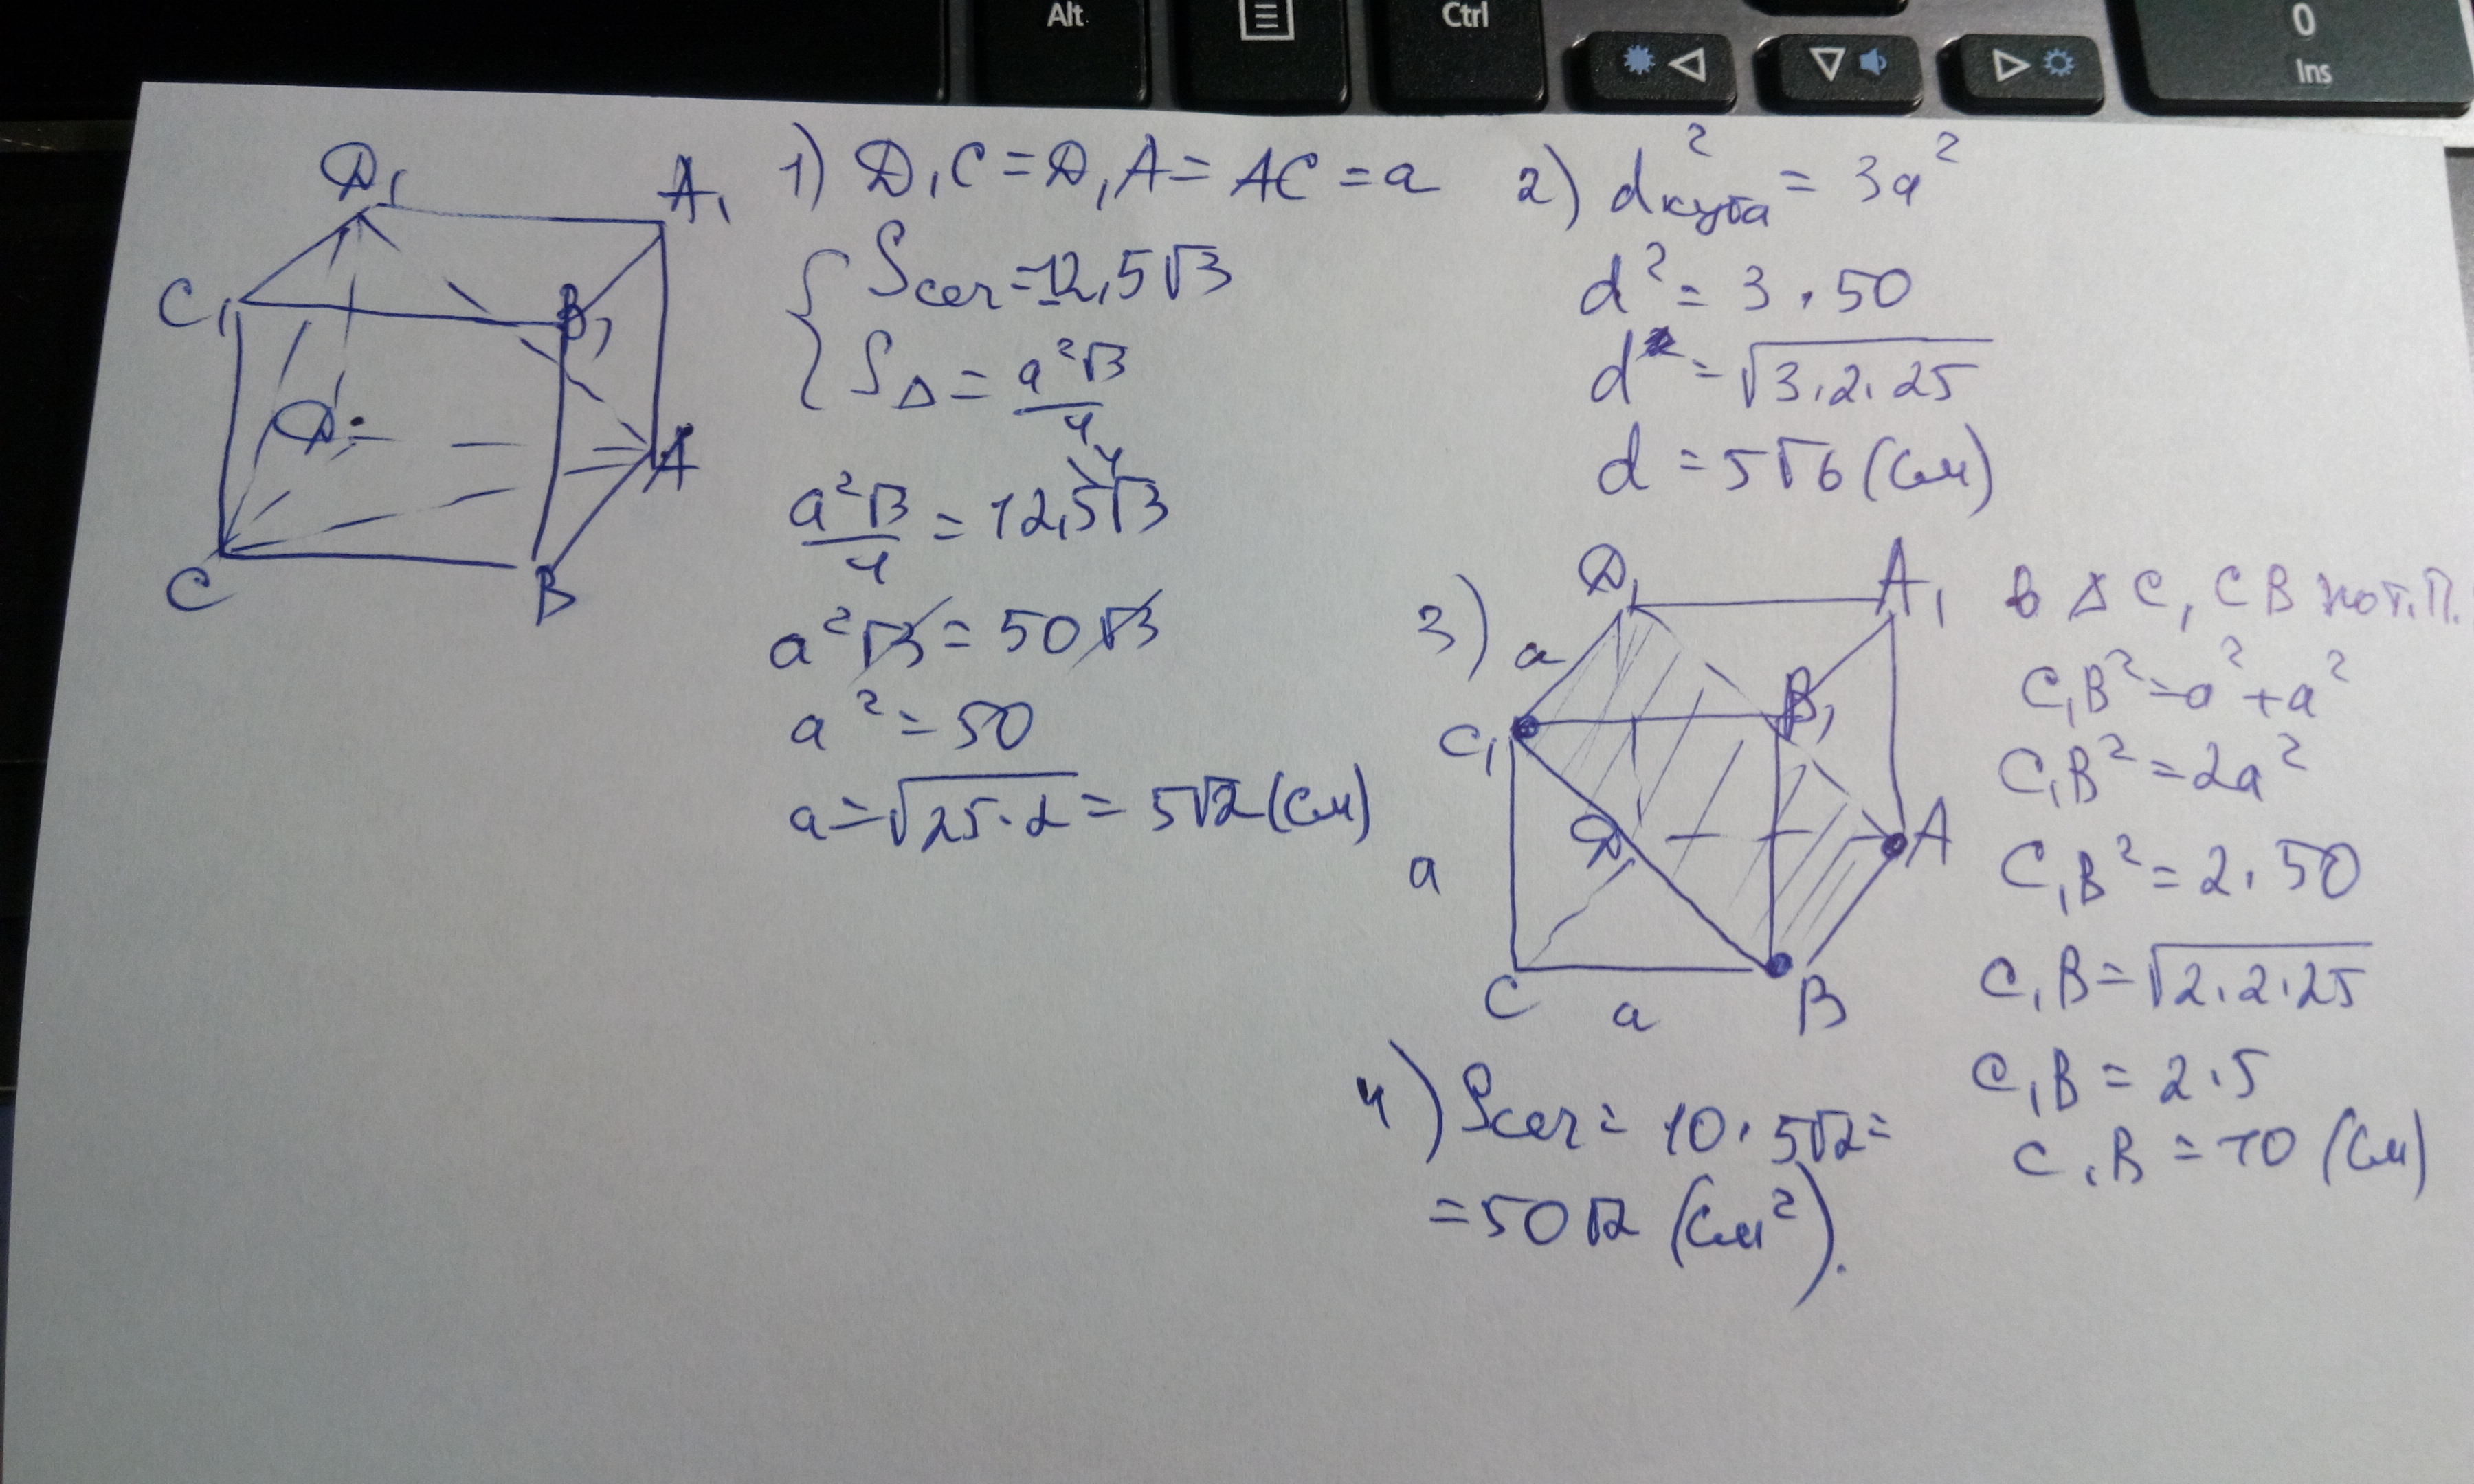 Alt
Ctrl
0
Ins
D₁
A₁
C₁
B₁
D
A
C
B
1) D₁C = D₁A = AC = a
Sсеч = 12,5√3
S△ = a²√3/4
a²√3/4 = 12,5√3 \4
a²√3 = 50√3
a² = 50
a = √25·2 = 5√2 (см)
2) d²куба = 3a²
d² = 3·50
d = √3·2·25
d = 5√6 (см)
3)
D₁
A₁
a
B₁
C₁
D
A
a
C
a
B
в △ C₁CB по т.П.
C₁B² = a² + a²
C₁B² = 2a²
C₁B² = 2·50
C₁B = √2·2·25
C₁B = 2·5
C₁B = 10 (см)
4) Sсеч = 10·5√2 =
= 50√2 (см²).